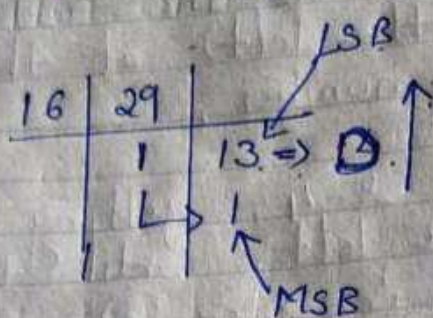 LSB
16 | 29
1 | 13 => D.
1
MSB